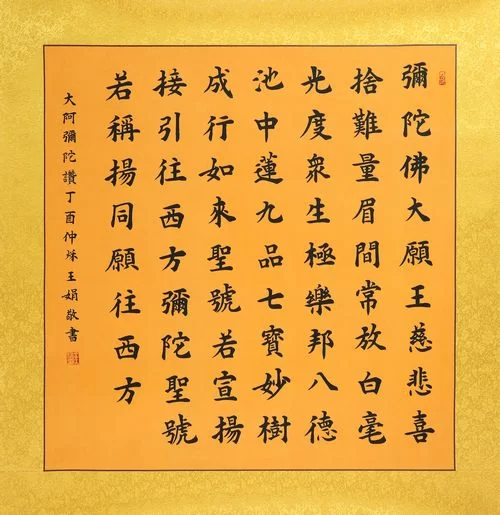 彌陀佛大願王慈悲喜
捨難量眉間常放白毫
光度衆生極樂邦八德
池中蓮九品七寶妙樹
成行如來聖號若宣揚
接引往西方彌陀聖號
若稱揚同願往西方
大阿彌陀讚丁酉仲秋王娟敬書